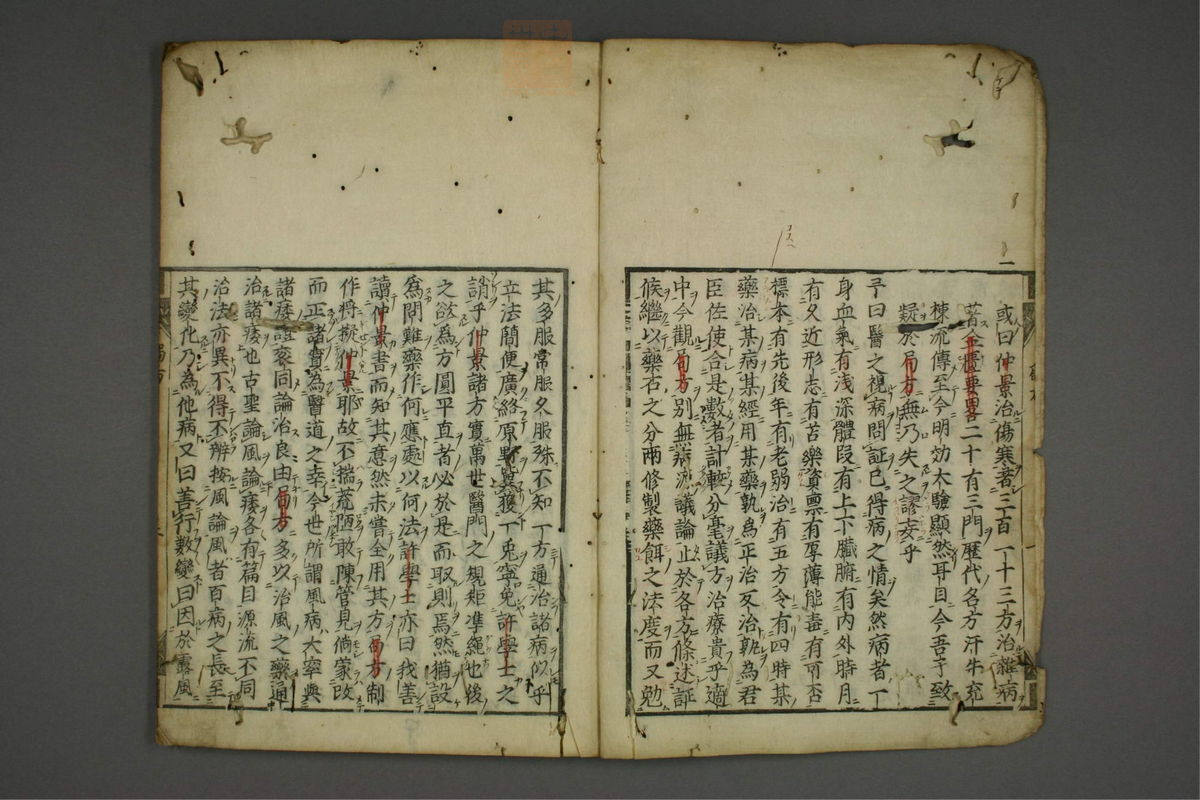 一
或曰仲景治傷寒著三百一十三方治雜病
著金櫃要畧二十有三門歷代名方汗牛充
棟流傳至今明効大驗顯然耳目今吾子致
疑於局方無乃失之謬妄乎
予曰醫之視病問証已得病之情矣然病者一
身血氣有淺深體段有上下臟腑有內外時月
有久近形志有苦樂資禀有厚薄能毒有可否
標本有先後年有老弱治有五方令有四時某
藥治某病某經用某藥孰為正治反治孰為君
臣佐使合是數者計較分毫議方治療貴乎適
中今觀局方別無病源議論止於各方條述証
候繼以藥石之分兩修製藥餌之法度而又勉
其多服常服久服殊不知一方通治諸病似乎
立法簡便廣絡原野冀獲一兎寧免許學士之
誚乎仲景諸方實萬世醫門之規矩準繩也後
之欲為方圓平直者必於是而取則焉然猶設
為問難藥作何應處以何法許學士亦曰我善
讀仲景書而知其意然未嘗全用其方局方制
作將擬仲景耶故不揣荒陋敢陳管見倘蒙改
而正諸實為醫道之幸今世所謂風病大率與
諸痿證衮同論治良由局方多以治風之藥通
治諸痿也古聖論風論痿各有篇目源流不同
治法亦異不得不辨按風論風者百病之長至
其變化乃為他病又曰善行數變曰因於露風